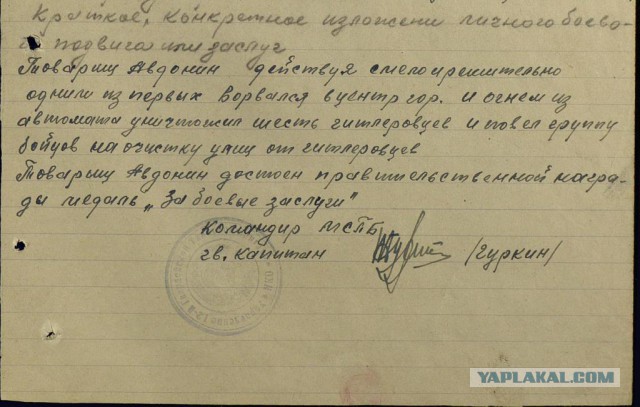 Краткое, конкретное изложени личного боево-
го подвига или заслуг
Товарищ Авдонин действуя смело и решительно
одним из первых ворвался в центр гор. и огнем из
автомата уничтожил шесть гитлеровцев и повел группу
бойцов на очистку улиц от гитлеровцев
Товарищ Авдонин достоен правительственной награ-
ды медаль „За боевые заслуги"
командир МСПБ
гв. капитан /Гуркин/
YAPLAKAL.COM